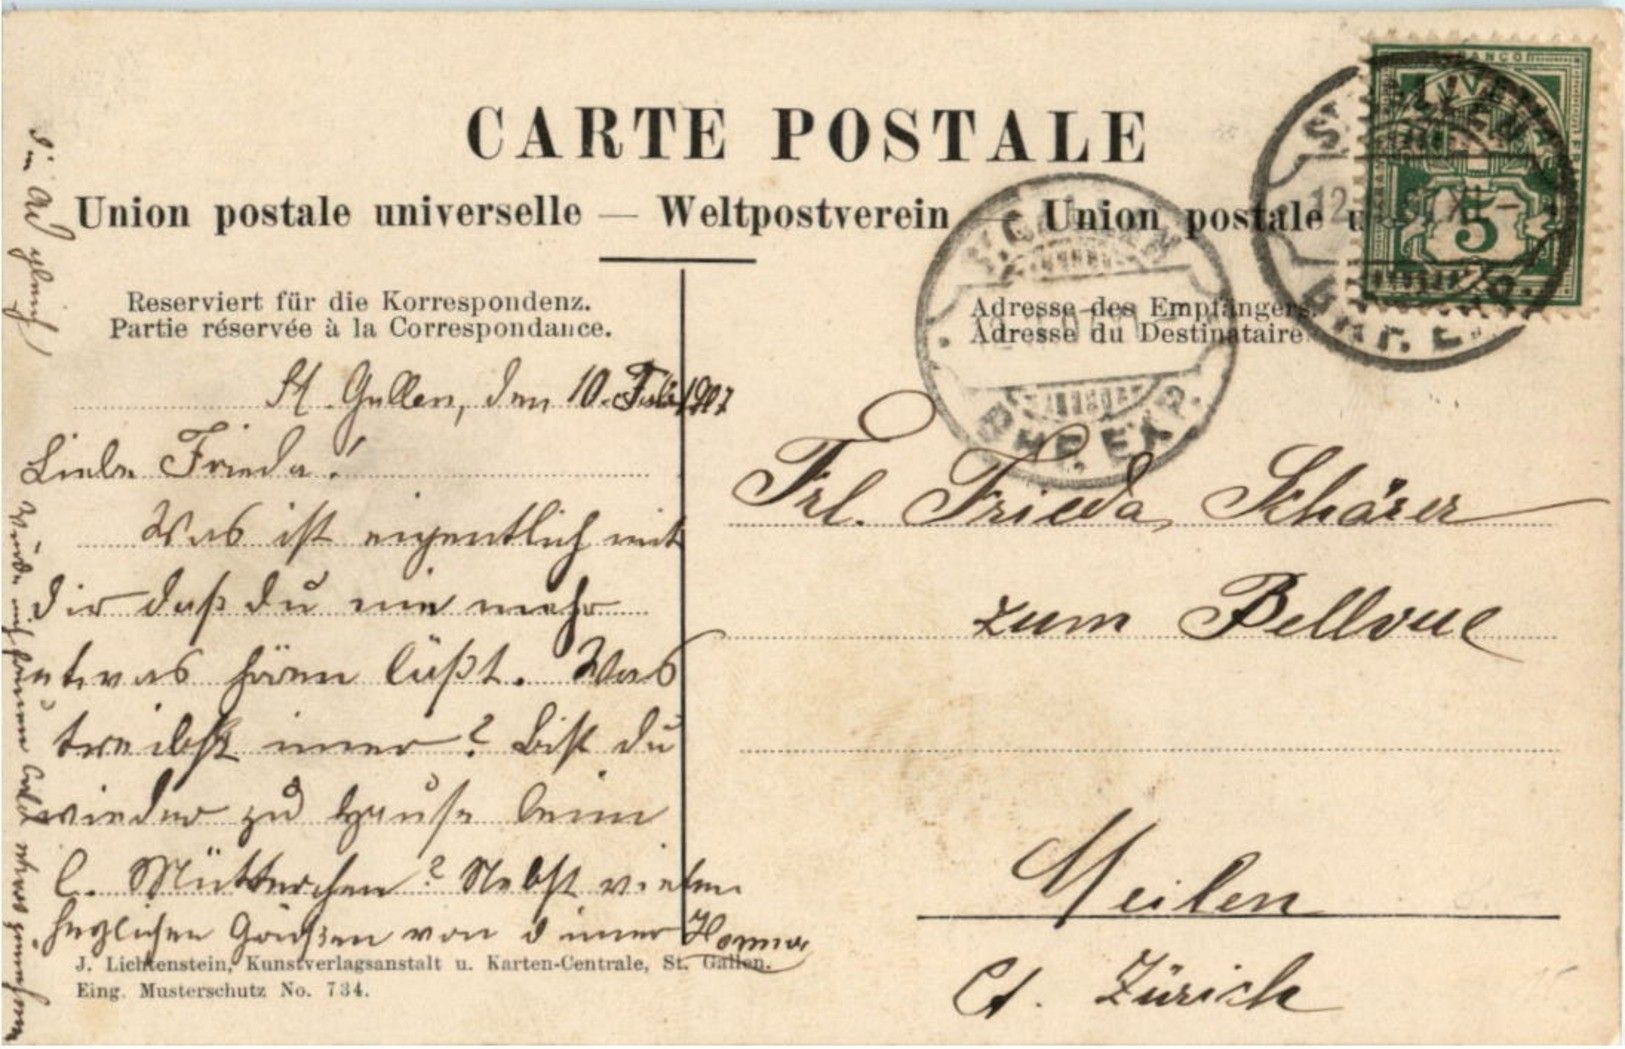 CARTE POSTALE
Union postale universelle — Weltpostverein — Union postale u
Reserviert für die Korrespondenz.
Partie réservée à la Correspondance.
Adresse des Empfängers.
Adresse du Destinataire.
FRANCO
5
ST. GALLEN
BRF. EXP.
12
ST. GALLEN
BRF. EXP.
St. Gallen, den 10. Juli 1907
Liebe Frieda!
Was ist eigentlich mit
dir daß du nie mehr
etwas hören läßt. Was
treibst immer? Bist du
wieder zu Hause beim
l. Mütterchen? Nebst vielen
herzlichen Grüßen von deiner
Würde mich freuen bald etwas
Frl. Frieda Schärer
zum Bellvue
Meilen
Ct. Zürich
J. Lichtenstein, Kunstverlagsanstalt u. Karten-Centrale, St. Gallen.
Eing. Musterschutz No. 734.